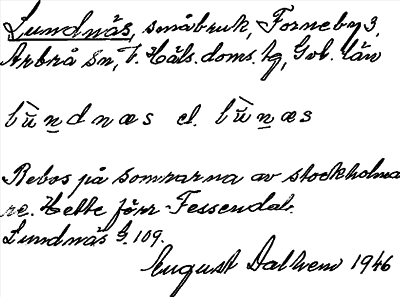 Lundnäs, småbruk, Forneby 3,
Arbrå sn, V. Häls. doms. hg, Gvb. län
lùndnæs el. lùnæs
Bebos på somrarna av stockholma
re. Hette förr Fessendal.
Lundnäs G. 109.
August Dalhem 1946